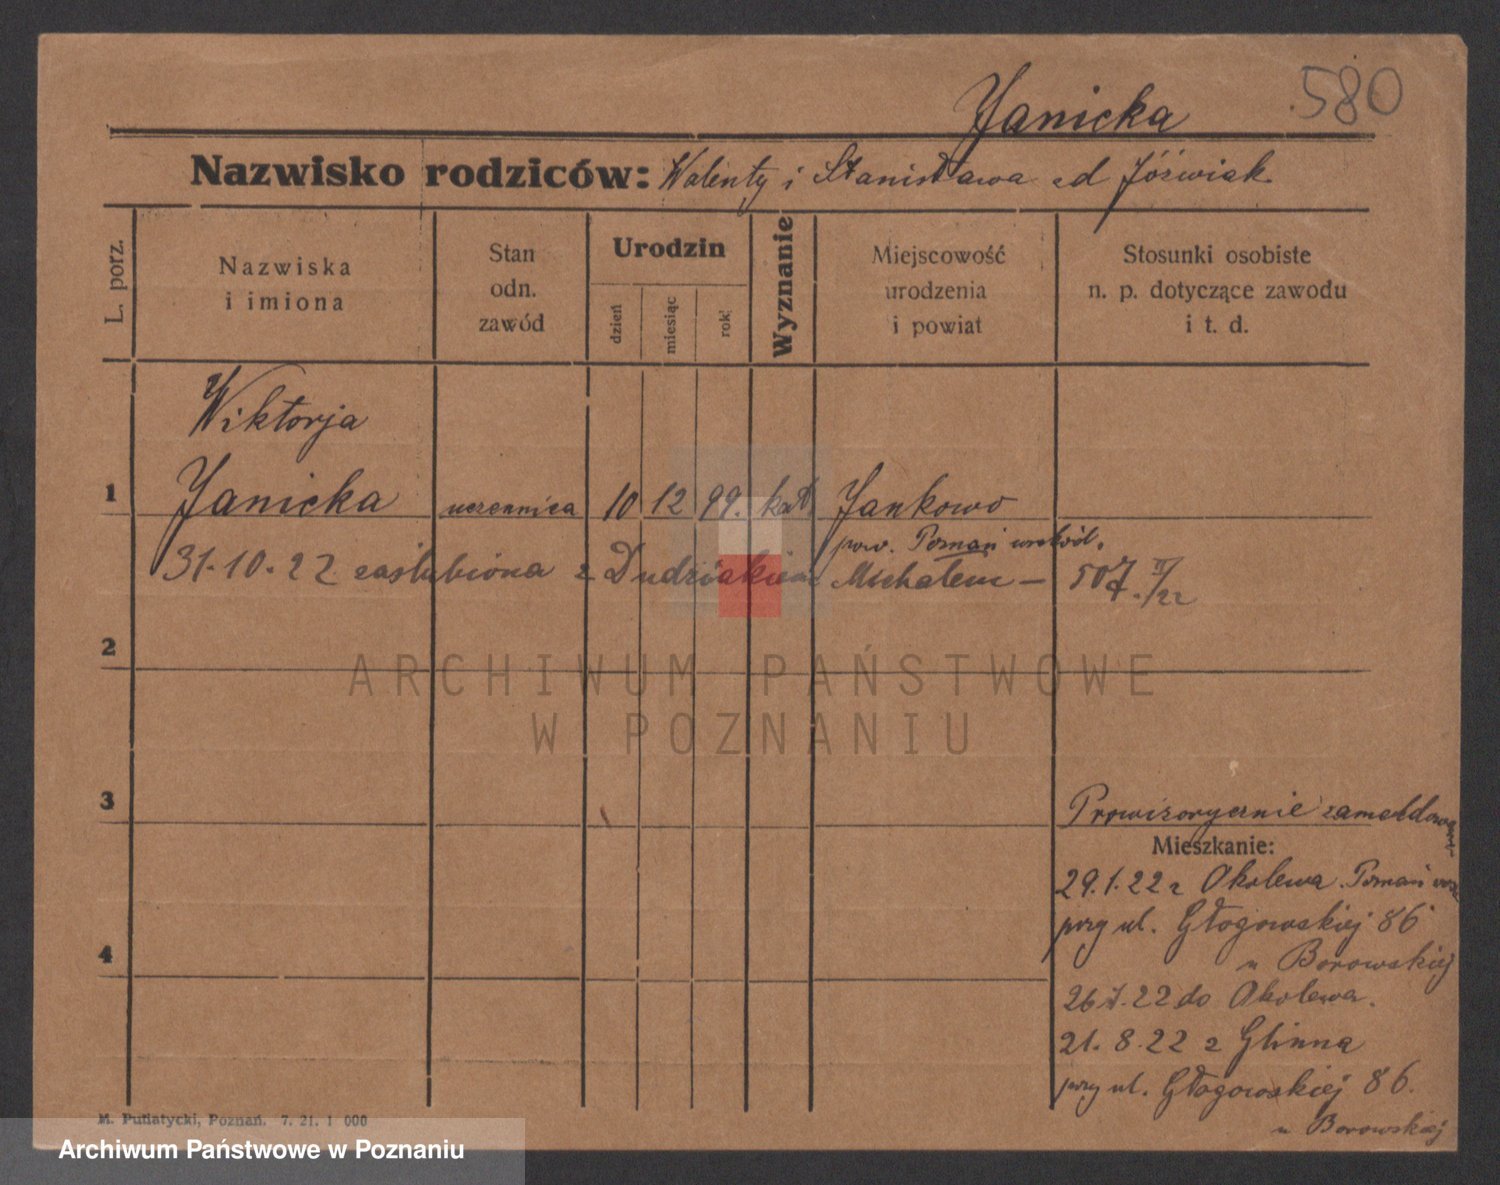 Janicka 580
Nazwisko rodziców: Walenty i Stanisława od Jóźwiak
L. porz.
Nazwiska
i imiona
Stan
odn.
zawód
Urodzin
dzień
miesiąc
rok
Wyznanie
Miejscowość
urodzenia
i powiat
Stosunki osobiste
n. p. dotyczące zawodu
i t. d.
Wiktorja
1 Janicka uczennica 10 12 99. kat Jankowo
pow. Poznań wschód.
31.10.22 zaślubiona z Dudziakiem Michałem — 507. II/22
2
3
Prowizorycznie zameldowane
Mieszkanie:
29.1.22 z Okolewa. Poznań
przy ul. Głogowskiej 86
4
u Borowskiej
22 do Okolewa.
21.8.22 z Glinna
przy ul. Głogowskiej 86.
u Borowskiej
M. Putiatycki, Poznań. 7. 21. 1 000
ARCHIWUM PAŃSTWOWE
W POZNANIU
Archiwum Państwowe w Poznaniu